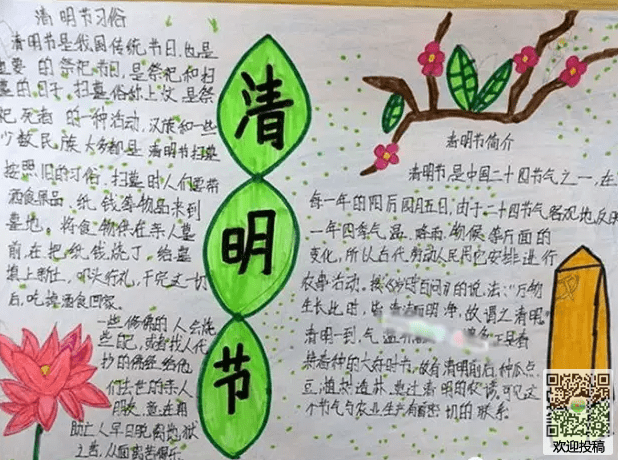 清明节习俗
清明节是我国传统节日,也是
重要的祭祀节日,是祭祀和扫
墓的日子,扫墓俗称上坟是祭
祀死者的一种活动,汉族和一些
少数民族大多都是清明节扫墓
按照旧的习俗,扫墓时人们要带
酒食果品,纸钱等物品来到
墓地,将食物供在亲人墓
前,在把纸钱烧了,给坟
填上新土,叩头行礼,干完这一切
后,吃掉酒食回家
一些修佛的人会
些 或者找人代
抄的佛经给他
们去世的亲人
助亡人早日脱离地狱
之苦,从面离苦得乐
清
明
节
清明节简介
清明节是中国二十四节气之一,在
每一年的四后四月五日,由于二十四节气客观地反映
一年四季气温、降雨、物候等方面的
变化,所以古代劳动人民用它安排进行
农事活动。《 百问》的说法:“万物
生长此时,皆清洁而明净,故谓之清明”
清明一到,气温 正是春
耕春种的大好时节,故有清明前后种瓜点
豆,植树造林,莫过清明的农谚,可见这
个节气与农业生产有着密切的联系
欢迎投稿